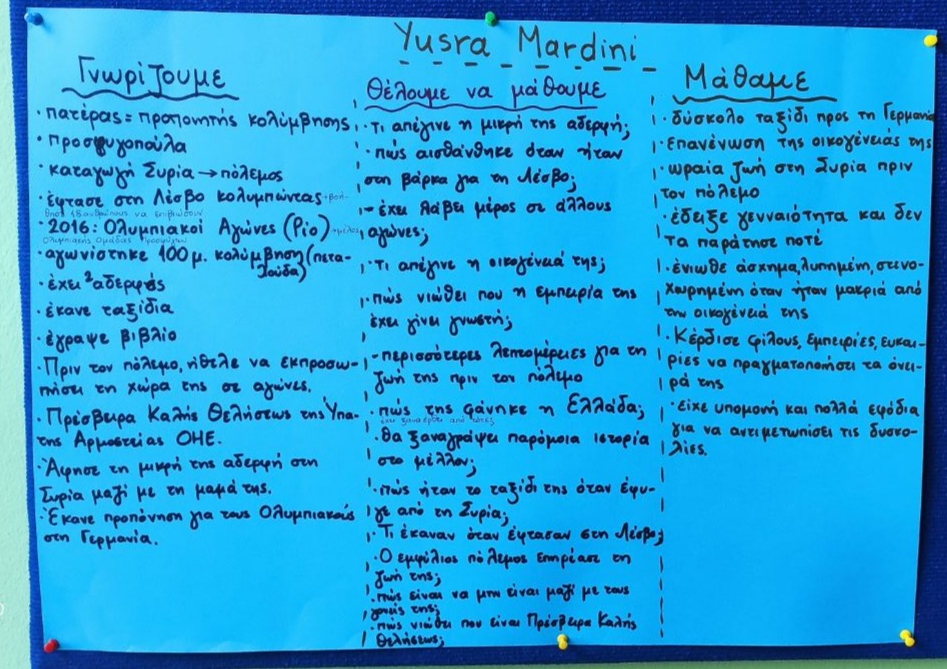 Yusra Mardini
Γνωρίζουμε
· πατέρας = προπονητής κολύμβησης
· προσφυγοπούλα
· καταγωγή Συρία → πόλεμος
· έφτασε στη Λέσβο κολυμπώντας - βοή-
θησε 18 ανθρώπους να επιβιώσουν
· 2016: Ολυμπιακοί Αγώνες (Ρίο) - μέλος
Ολυμπιακής Ομάδας Προσφύγων
· αγωνίστηκε 100 μ. κολύμβηση (πετα-
λούδα)
· έχει 2 αδερφές
· έκανε ταξίδια
· έγραψε βιβλίο
· Πριν τον πόλεμο, ήθελε να εκπροσω-
πήσει τη χώρα της σε αγώνες.
· Πρέσβειρα Καλής Θελήσεως της Ύπα-
της Αρμοστείας ΟΗΕ.
· Άφησε τη μικρή της αδερφή στη
Συρία μαζί με τη μαμά της.
· Έκανε προπόνηση για τους Ολυμπιακούς
στη Γερμανία.
Θέλουμε να μάθουμε
· Τι απέγινε η μικρή της αδερφή;
· πώς αισθάνθηκε όταν ήταν
στη βάρκα για τη Λέσβο;
- έχει λάβει μέρος σε άλλους
αγώνες;
· Τι απέγινε η οικογένειά της;
· πώς νιώθει που η εμπειρία της
έχει γίνει γνωστή;
- περισσότερες λεπτομέρειες για τη
ζωή της πριν τον πόλεμο
· πώς της φάνηκε η Ελλάδα;
έχει ξαναέρθει από τότε;
· θα ξαναγράψει παρόμοια ιστορία
στο μέλλον;
· πώς ήταν το ταξίδι της όταν έφυ-
γε από τη Συρία;
· Τι έκαναν όταν έφτασαν στη Λέσβο;
· Ο εμφύλιος πόλεμος επηρέασε τη
ζωή της;
· πώς είναι να μην είναι μαζί με τους
γονείς της;
· πώς νιώθει που είναι Πρέσβειρα Καλής
Θελήσεως;
Μάθαμε
· δύσκολο ταξίδι προς τη Γερμανία
· επανένωση της οικογένειάς της
· ωραία ζωή στη Συρία πριν
τον πόλεμο
· έδειξε γενναιότητα και δεν
τα παράτησε ποτέ
· ένιωθε άσχημα, λυπημένη, στενο-
χωρημένη όταν ήταν μακριά από
την οικογένειά της
· Κέρδισε φίλους, εμπειρίες, ευκαι-
ρίες να πραγματοποιήσει τα όνει-
ρά της
· είχε υπομονή και πολλά εφόδια
για να αντιμετωπίσει τις δυσκο-
λίες.